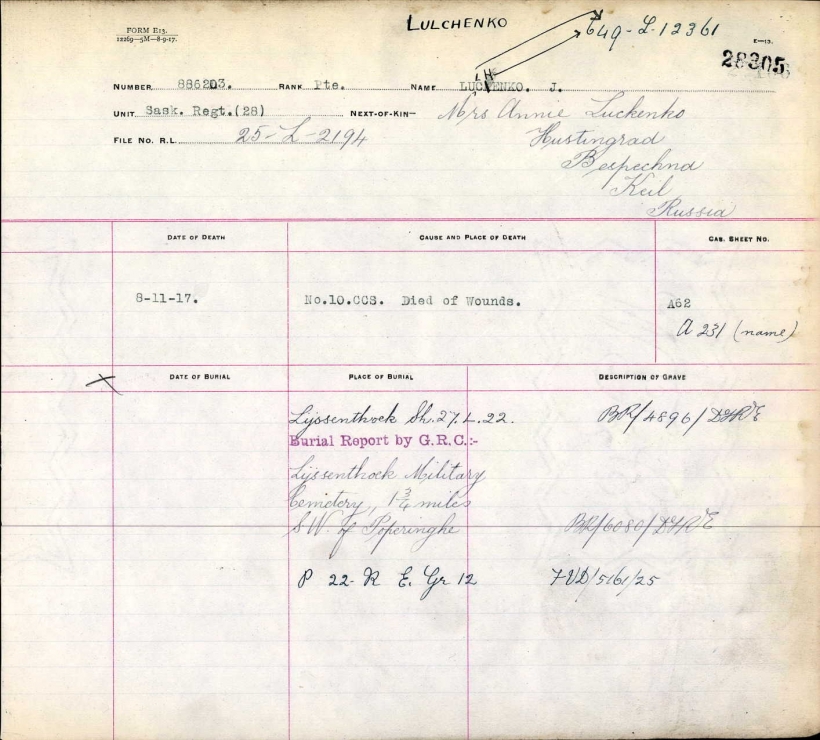 LULCHENKO
649-L-12361
FORM E13.
12269—5M—8-9-17.
E—13.
28305
NUMBER 886203. RANK Pte. NAME LUCHENKO. J.
LH
UNIT Sask. Regt.(28) NEXT-OF-KIN— Mrs Annie Luckenko
FILE NO. R.L. 25-L-2194 Hustingrad
Beepechna
Keil
Russia
DATE OF DEATH CAUSE AND PLACE OF DEATH CAS. SHEET NO.
8-11-17. No.10.CCS. Died of Wounds. A62
A 231 (name)
X
DATE OF BURIAL PLACE OF BURIAL DESCRIPTION OF GRAVE
Lijssenthoek Sh.27.L.22. BR/4896/DGR'E
Burial Report by G.R.C.:-
Lijssenthoek Military
Cemetery, 1¾ miles
S.W. of Poperinghe BR/6080/DGR'E
P 22- R E. Gr 12 FVD/5161/25